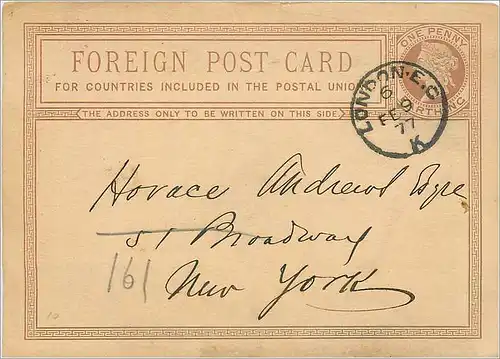 FOREIGN POST CARD
FOR COUNTRIES INCLUDED IN THE POSTAL UNION
THE ADDRESS ONLY TO BE WRITTEN ON THIS SIDE
ONE PENNY
LONDON·E.C
6
FE 9
77
K
Horace Andrews Esqre
51 Broadway
161
New York
10